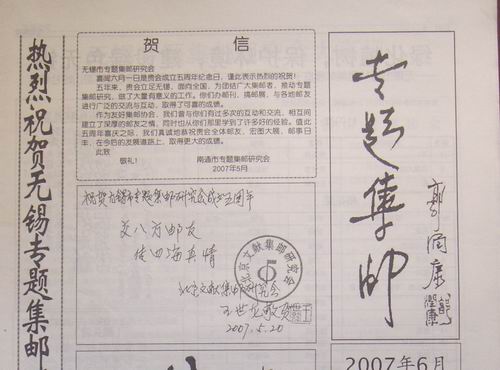 热烈祝贺无锡专题集邮
贺信
无锡市专题集邮研究会
喜闻六月一日是贵会成立五周年纪念日，谨此表示热烈的祝贺！
五年来，贵会立足无锡，面向全国，为团结广大集邮者，推动专题
集邮研究，做了大量有意义的工作。你们办邮刊，搞邮展，与各地邮友
进行广泛的交流与互动，取得了可喜的成绩。
作为友好集邮协会，我们曾与你们有过多次的互动和交流，相互间
建立了深厚的邮友之情，同时也从你们那里学到了许多好的经验。值此
五周年喜庆之际，我们真诚地恭祝贵会全体邮友，宏图大展，邮事日
丰，在今后的发展道路上，取得更大的成绩。
此致
敬礼！
南通市专题集邮研究会
2007年5月
祝贺无锡市专题集邮研究会成立五周年
交八方邮友
传四海真情
北京文献集邮研究会
北京文献集邮研究会
敬贺
2007.5.20
专题集邮
郭润康
2007年6月